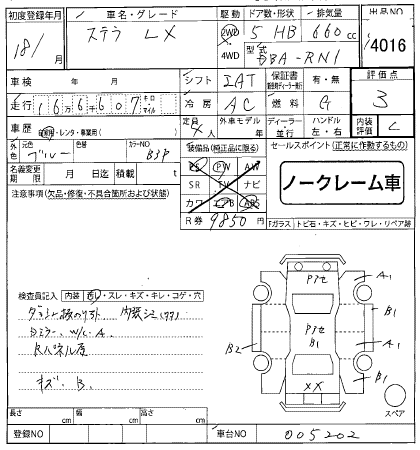 初度登録年月 車名・グレード 駆動 ドア数・形状 排気量 出品NO
18/ 月 ステラ LX 2WD 5 HB 660cc 4016
4WD 型式 DBA-RN1
車検 年 月 シフト IAT 保証書 有・無 評価点
走行 166607 キロ マイル 冷房 AC 燃料 G 3
車歴 自家用・レンタ・事業用( ) 定員 4人 外車モデル 年 ディーラー 並行 ハンドル 左・右 内装評価 C
外色 元色 ブルー 色替 カラーNO B3P 装備品(純正品に限る) セールスポイント(正常に作動するもの)
名義変更期限 月 日迄 積載 t PS PW AW
注意事項(欠品・修復・不具合箇所および状態) SR TV ナビ ノークレーム車
カワ エアB ABS
R券 9850円 Fガラス トビ石・キズ・ヒビ・ワレ・リペア跡
検査員記入 内装 ヨゴレ・スレ・キズ・キレ・コゲ・穴
内装シミ
ミラー W/C.A
Rパネル
キズ. B.
Pアセ A1
Pアセ B1
B1 A1
B2
XX B1
スペア
長さ cm 幅 cm 高さ cm
登録NO 車台NO 005202